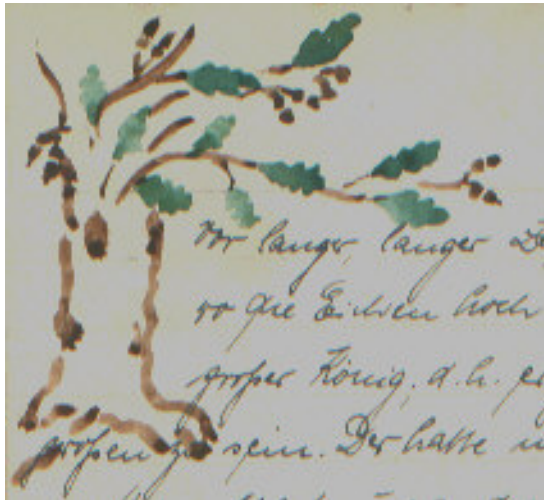 Vor langer, langer Ze
wo die Eichen hoch
großer König, d.h. er
großen zu sein. Der hatte